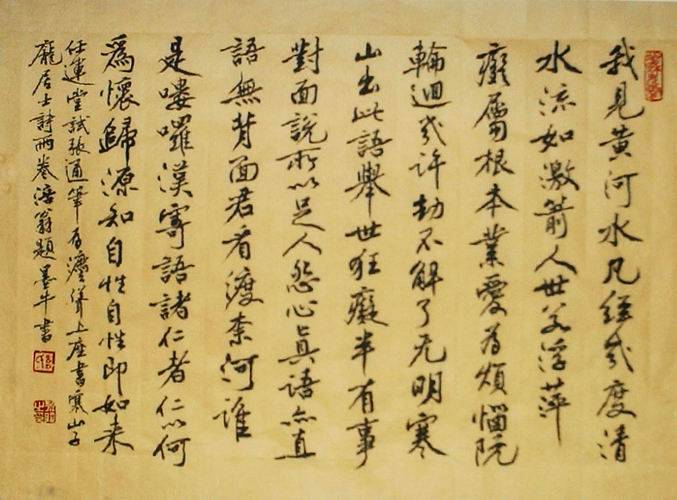 我見黃河水凡經幾度清
水流如激箭人世若浮萍
癡屬根本業愛為煩惱阬
輪迴幾許劫不解了无明寒
山出此語舉世狂癡半有事
對面說所以足人怨心真語亦直
語無背面君看渡奈河誰
是嘍囉漢寄語諸仁者仁以何
為懷歸源知自性自性即如来
任運堂試張通筆為灋聳上座書寒山子
龐居士詩兩卷涪翁題墨牛書